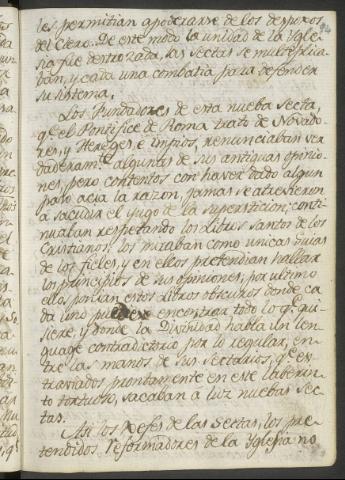 les permitian apoderarse de los despojos
del Clero. De este modo la unidad de la Ygle-
sia fue destrozada, las sectas se multeplica-
ban, y cada una combatia para defender
su sistema.
Los Fundadores de esta nueba Secta,
q.e el Pontifice de Roma trato de Novado-
res, y Hereges e impios, renunciaban ver
daderam.te algunas de sus antiguas opinio-
nes, pero contentos con haver dado algun
paso acia la razon, jamas se atrevieron
a sacudir el yugo de la supersticion; conti-
nuaban respetando los Libros Santos de los
Cristianos; los miraban como unicas guias
de los fieles, y en ellos pretendian hallar
los principios de sus opiniones; por ultimo
ellos ponian estos Libros obscuros donde ca-
da uno puede encontrar todo lo q.e qui-
siere, y donde la Divinidad habla un len-
guage contradictorio por lo regular, en-
tre las manos de sus Sectarios, q.e es-
traviados prontamente en este laberin-
to tortuoso, sacaban a luz nuebas Sec-
tas.
Asi los Xefes de las Sectas, los pre-
tendidos reformadores de la Yglesia no